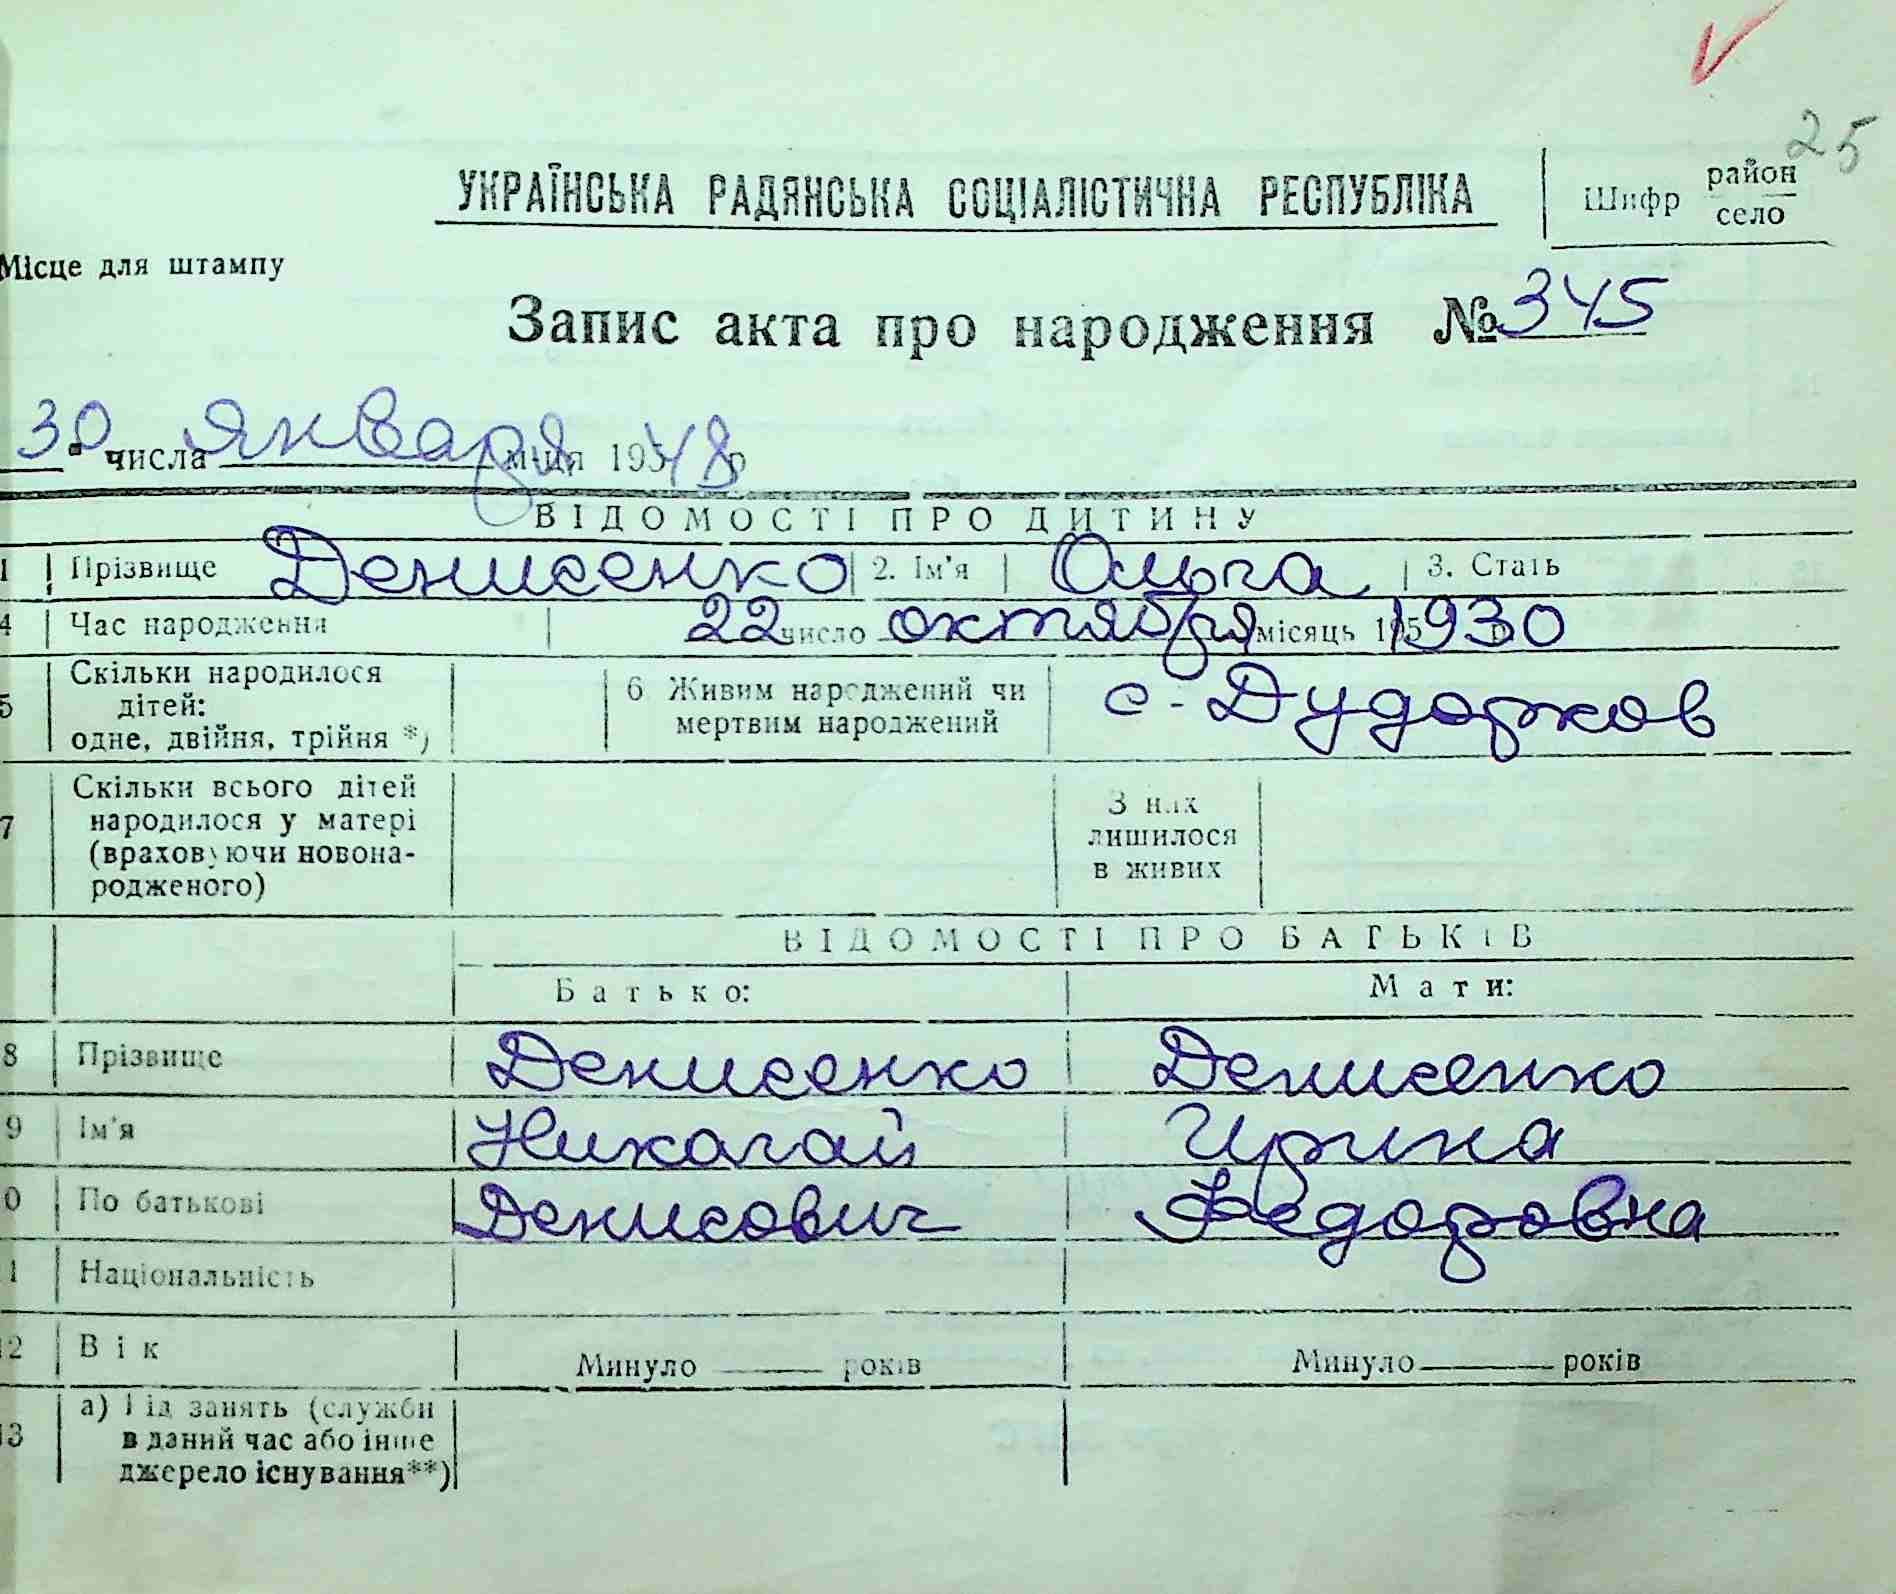 25
УКРАЇНСЬКА РАДЯНСЬКА СОЦІАЛІСТИЧНА РЕСПУБЛІКА
Шифр район село
Місце для штампу
Запис акта про народження № 345
30 числа января м-ця 195 48 р
ВІДОМОСТІ ПРО ДИТИНУ
1 Прізвище Денисенко 2. Ім'я Ольга 3. Стать
4 Час народження 22 число октября місяць 195 1930 р
5 Скільки народилося дітей: одне, двійня, трійня *) 6 Живим народжений чи мертвим народжений с. Дударков
7 Скільки всього дітей народилося у матері (враховуючи новонародженого) З них лишилося в живих
ВІДОМОСТІ ПРО БАТЬКІВ
Батько: Мати:
8 Прізвище Денисенко Денисенко
9 Ім'я Николай Ирина
0 По батькові Денисович Федоровна
1 Національність
2 Вік Минуло років Минуло років
3 а) Під занять (служби
в даний час або інше
джерело існування**)